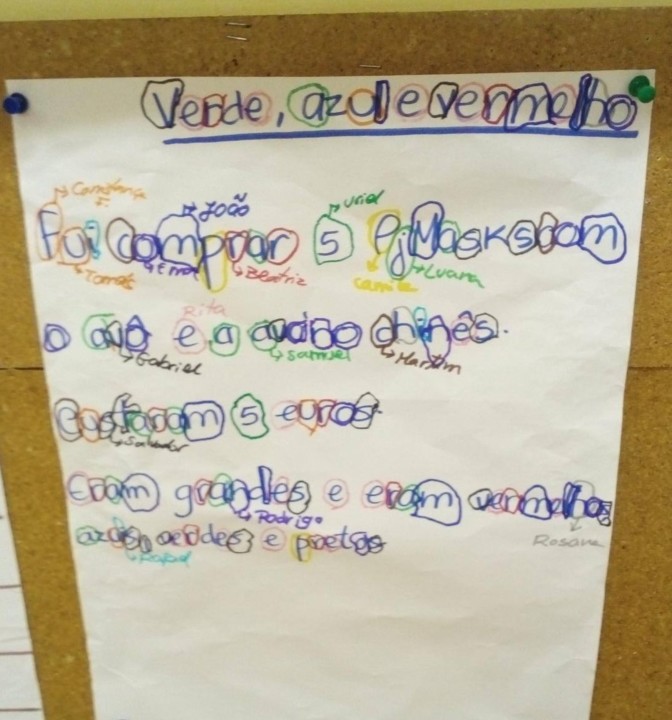 Verde, azul e vermelho
Constança
João
Uriel
Fui comprar 5 PjMasks com
Tomás
Ema
Beatriz
Camila
Luana
Rita
o avô e a avó ao chinês.
Gabriel
Samuel
Martim
Custaram 5 euros.
Salvador
Eram grandes e eram vermelhos
Rodrigo
azuis, verdes e pretos
Rafael
Rosana